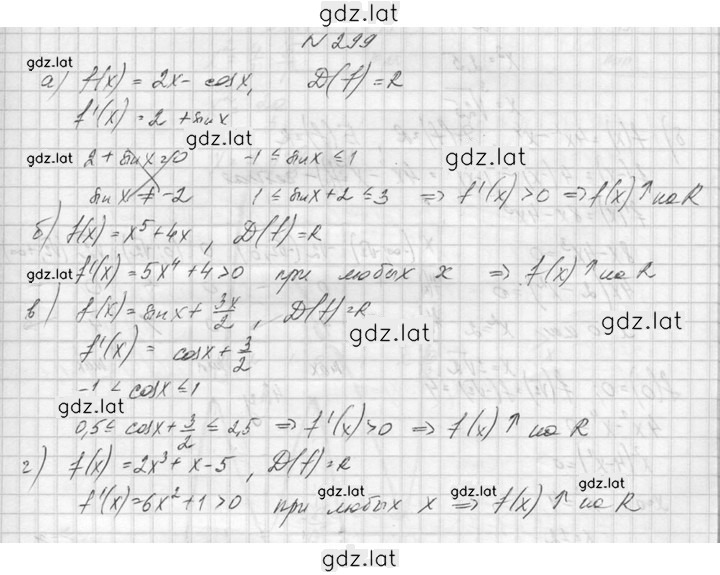 gdz.lat
N 299
gdz.lat
а) f(x) = 2x - cosx, D(f) = R
f'(x) = 2 + sinx
gdz.lat
gdz.lat 2 + sinx = 0 -1 ≤ sinx ≤ 1 gdz.lat
sinx ≠ -2 1 ≤ sinx + 2 ≤ 3 ⇒ f'(x) > 0 ⇒ f(x) ↑ на R
б) f(x) = x⁵ + 4x, D(f) = R
gdz.lat f'(x) = 5x⁴ + 4 > 0 при любых x ⇒ f(x) ↑ на R
в) f(x) = sinx + 3x/2, D(f) = R
gdz.lat gdz.lat
f'(x) = cosx + 3/2
-1 ≤ cosx ≤ 1
gdz.lat
0,5 ≤ cosx + 3/2 ≤ 2,5 ⇒ f'(x) > 0 ⇒ f(x) ↑ на R
г) f(x) = 2x³ + x - 5, D(f) = R
gdz.lat gdz.lat gdz.lat
f'(x) = 6x² + 1 > 0 при любых x ⇒ f(x) ↑ на R
gdz.lat